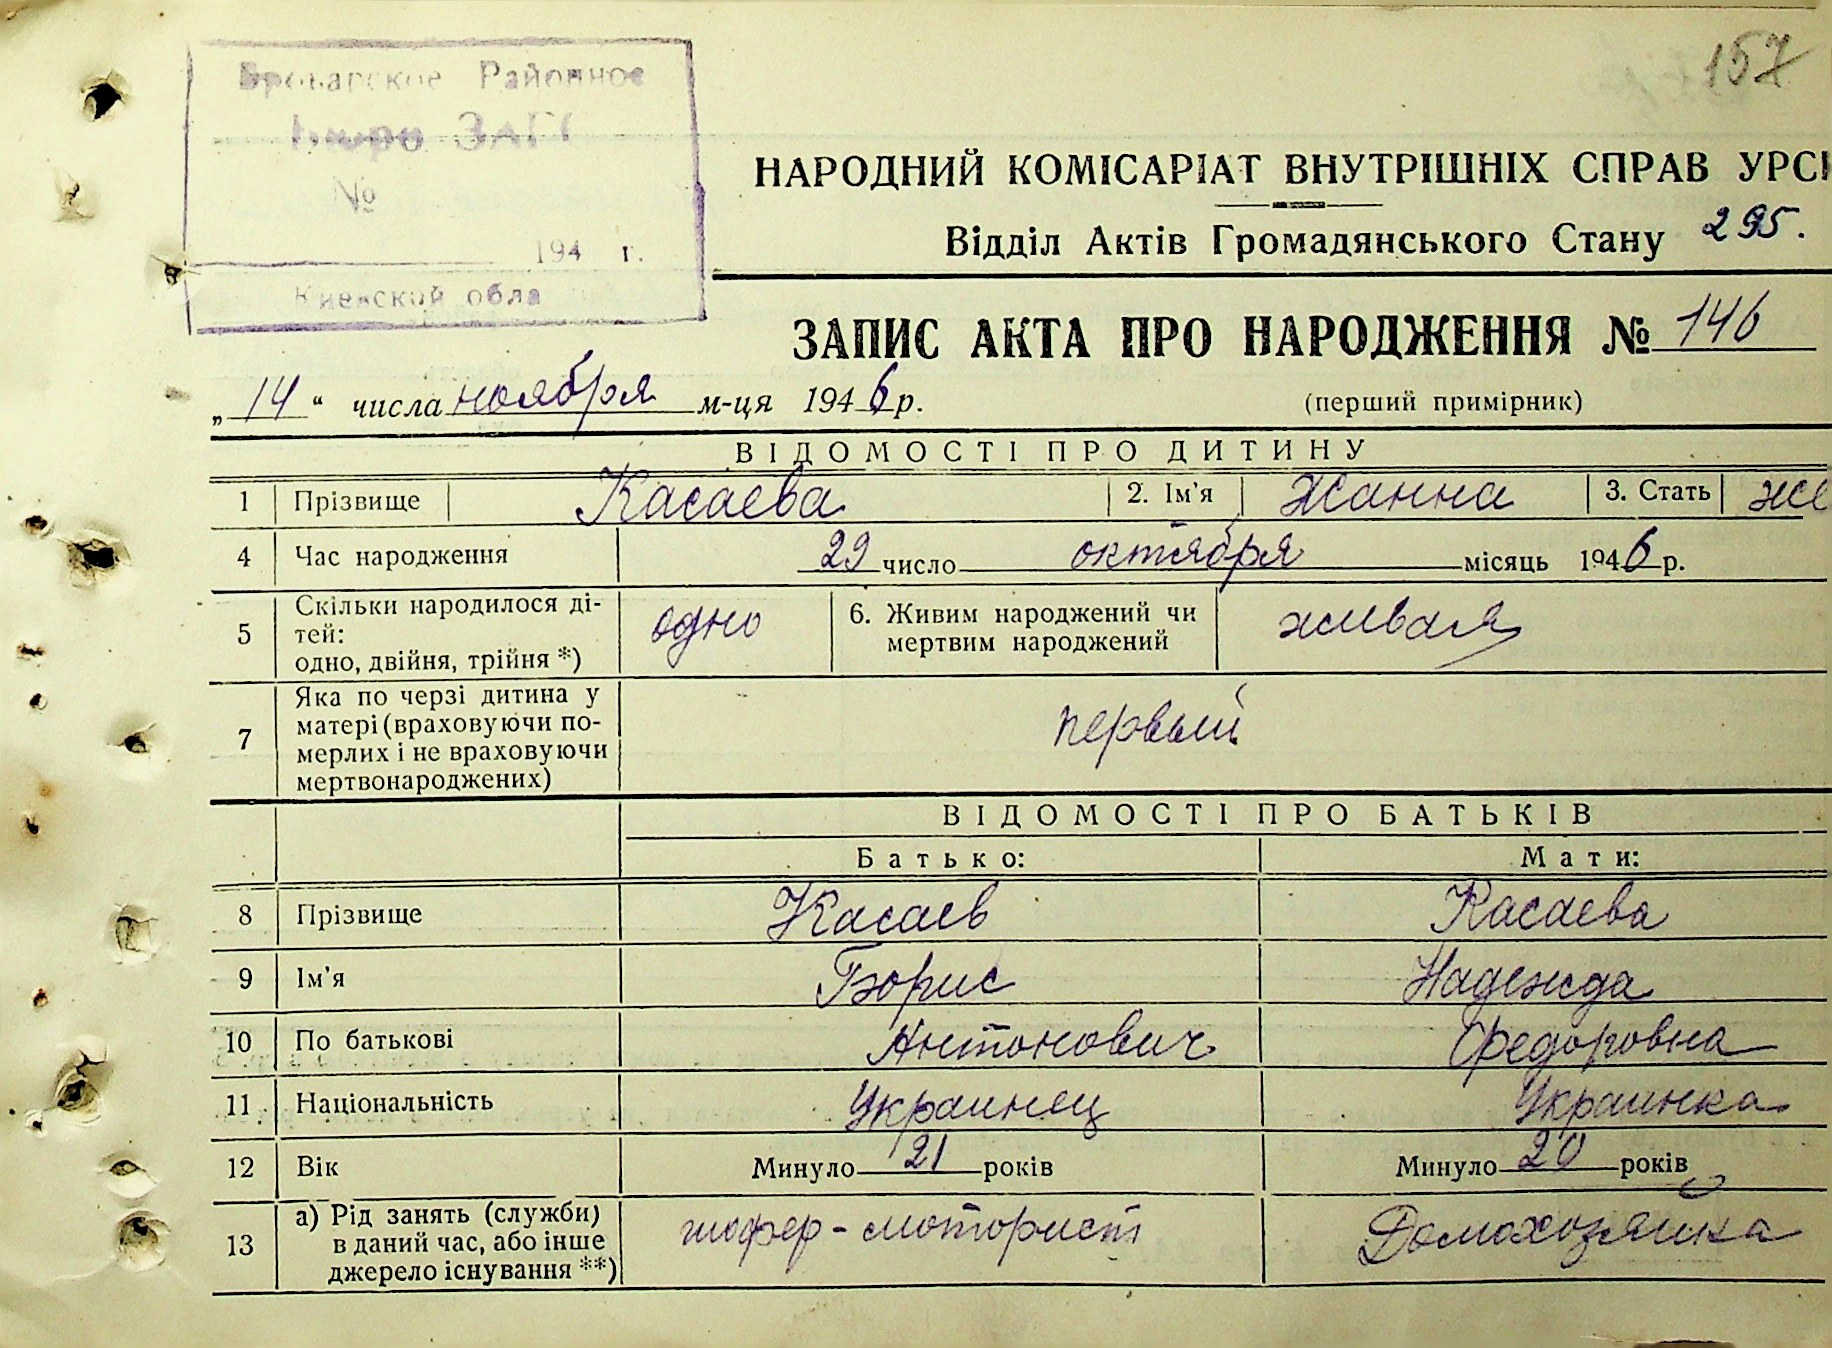 157
Броварское Районное
Бюро ЗАГС
№
194 г.
Киевской обла
НАРОДНИЙ КОМІСАРІАТ ВНУТРІШНІХ СПРАВ УРСР
Відділ Актів Громадянського Стану 295.
ЗАПИС АКТА ПРО НАРОДЖЕННЯ № 146
„14“ числа ноября м-ця 1946 р.
(перший примірник)
ВІДОМОСТІ ПРО ДИТИНУ
1 Прізвище Касаева 2. Ім'я Жанна 3. Стать же
4 Час народження 29 число октября місяць 1946 р.
5 Скільки народилося ді-
тей:
одно, двійня, трійня *) одно 6. Живим народжений чи
мертвим народжений живая
7 Яка по черзі дитина у
матері (враховуючи по-
мерлих і не враховуючи
мертвонароджених) первый
ВІДОМОСТІ ПРО БАТЬКІВ
Батько: Мати:
8 Прізвище Касаев Касаева
9 Ім'я Борис Надежда
10 По батькові Антонович Федоровна
11 Національність Украинец Украинка
12 Вік Минуло 21 років Минуло 20 років
13 а) Рід занять (служби)
в даний час, або інше
джерело існування **) шофер-моторист Домохозяйка